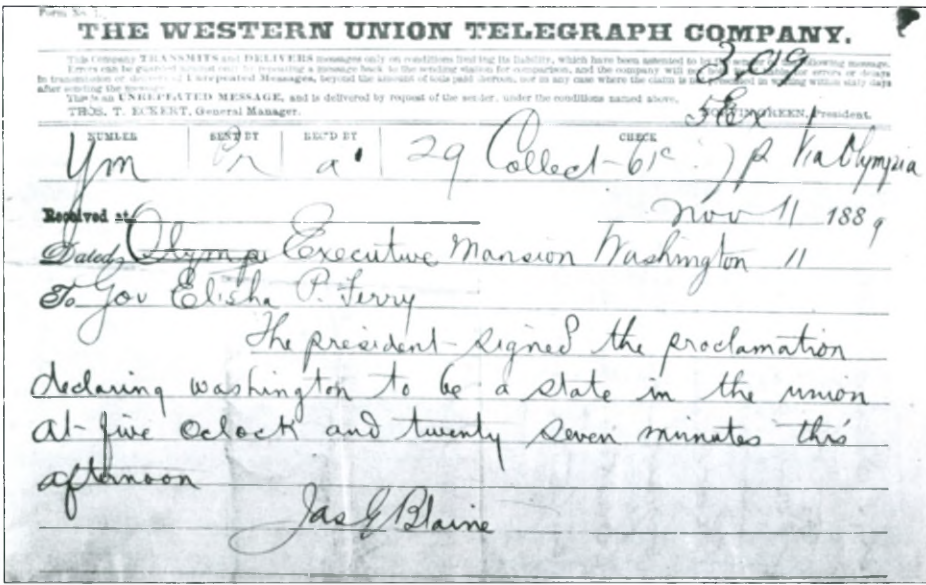 Form No. 1.
THE WESTERN UNION TELEGRAPH COMPANY.
This Company TRANSMITS and DELIVERS messages only on conditions limiting its liability, which have been assented to by the sender of the following message.
Errors can be guarded against only by repeating a message back to the sending station for comparison, and the company will not for errors or delays
In transmission or delivery of Unrepeated Messages, beyond the amount of tolls paid thereon, nor in any case where the claim is not presented in writing within sixty days
after sending the message.
This is an UNREPEATED MESSAGE, and is delivered by request of the sender, under the conditions named above.
THOS. T. ECKERT, General Manager. GREEN, President.
3.09
NUMBER SENT BY REC'D BY CHECK
Ym a 29 Collect 61c Via Olympia
Received at Nov 11 1889
Dated Olympia Executive Mansion Washington 11
To Gov Elisha P. Ferry
The president signed the proclamation
declaring washington to be a state in the union
at five oclock and twenty seven minutes this
afternoon
Jas G Blaine